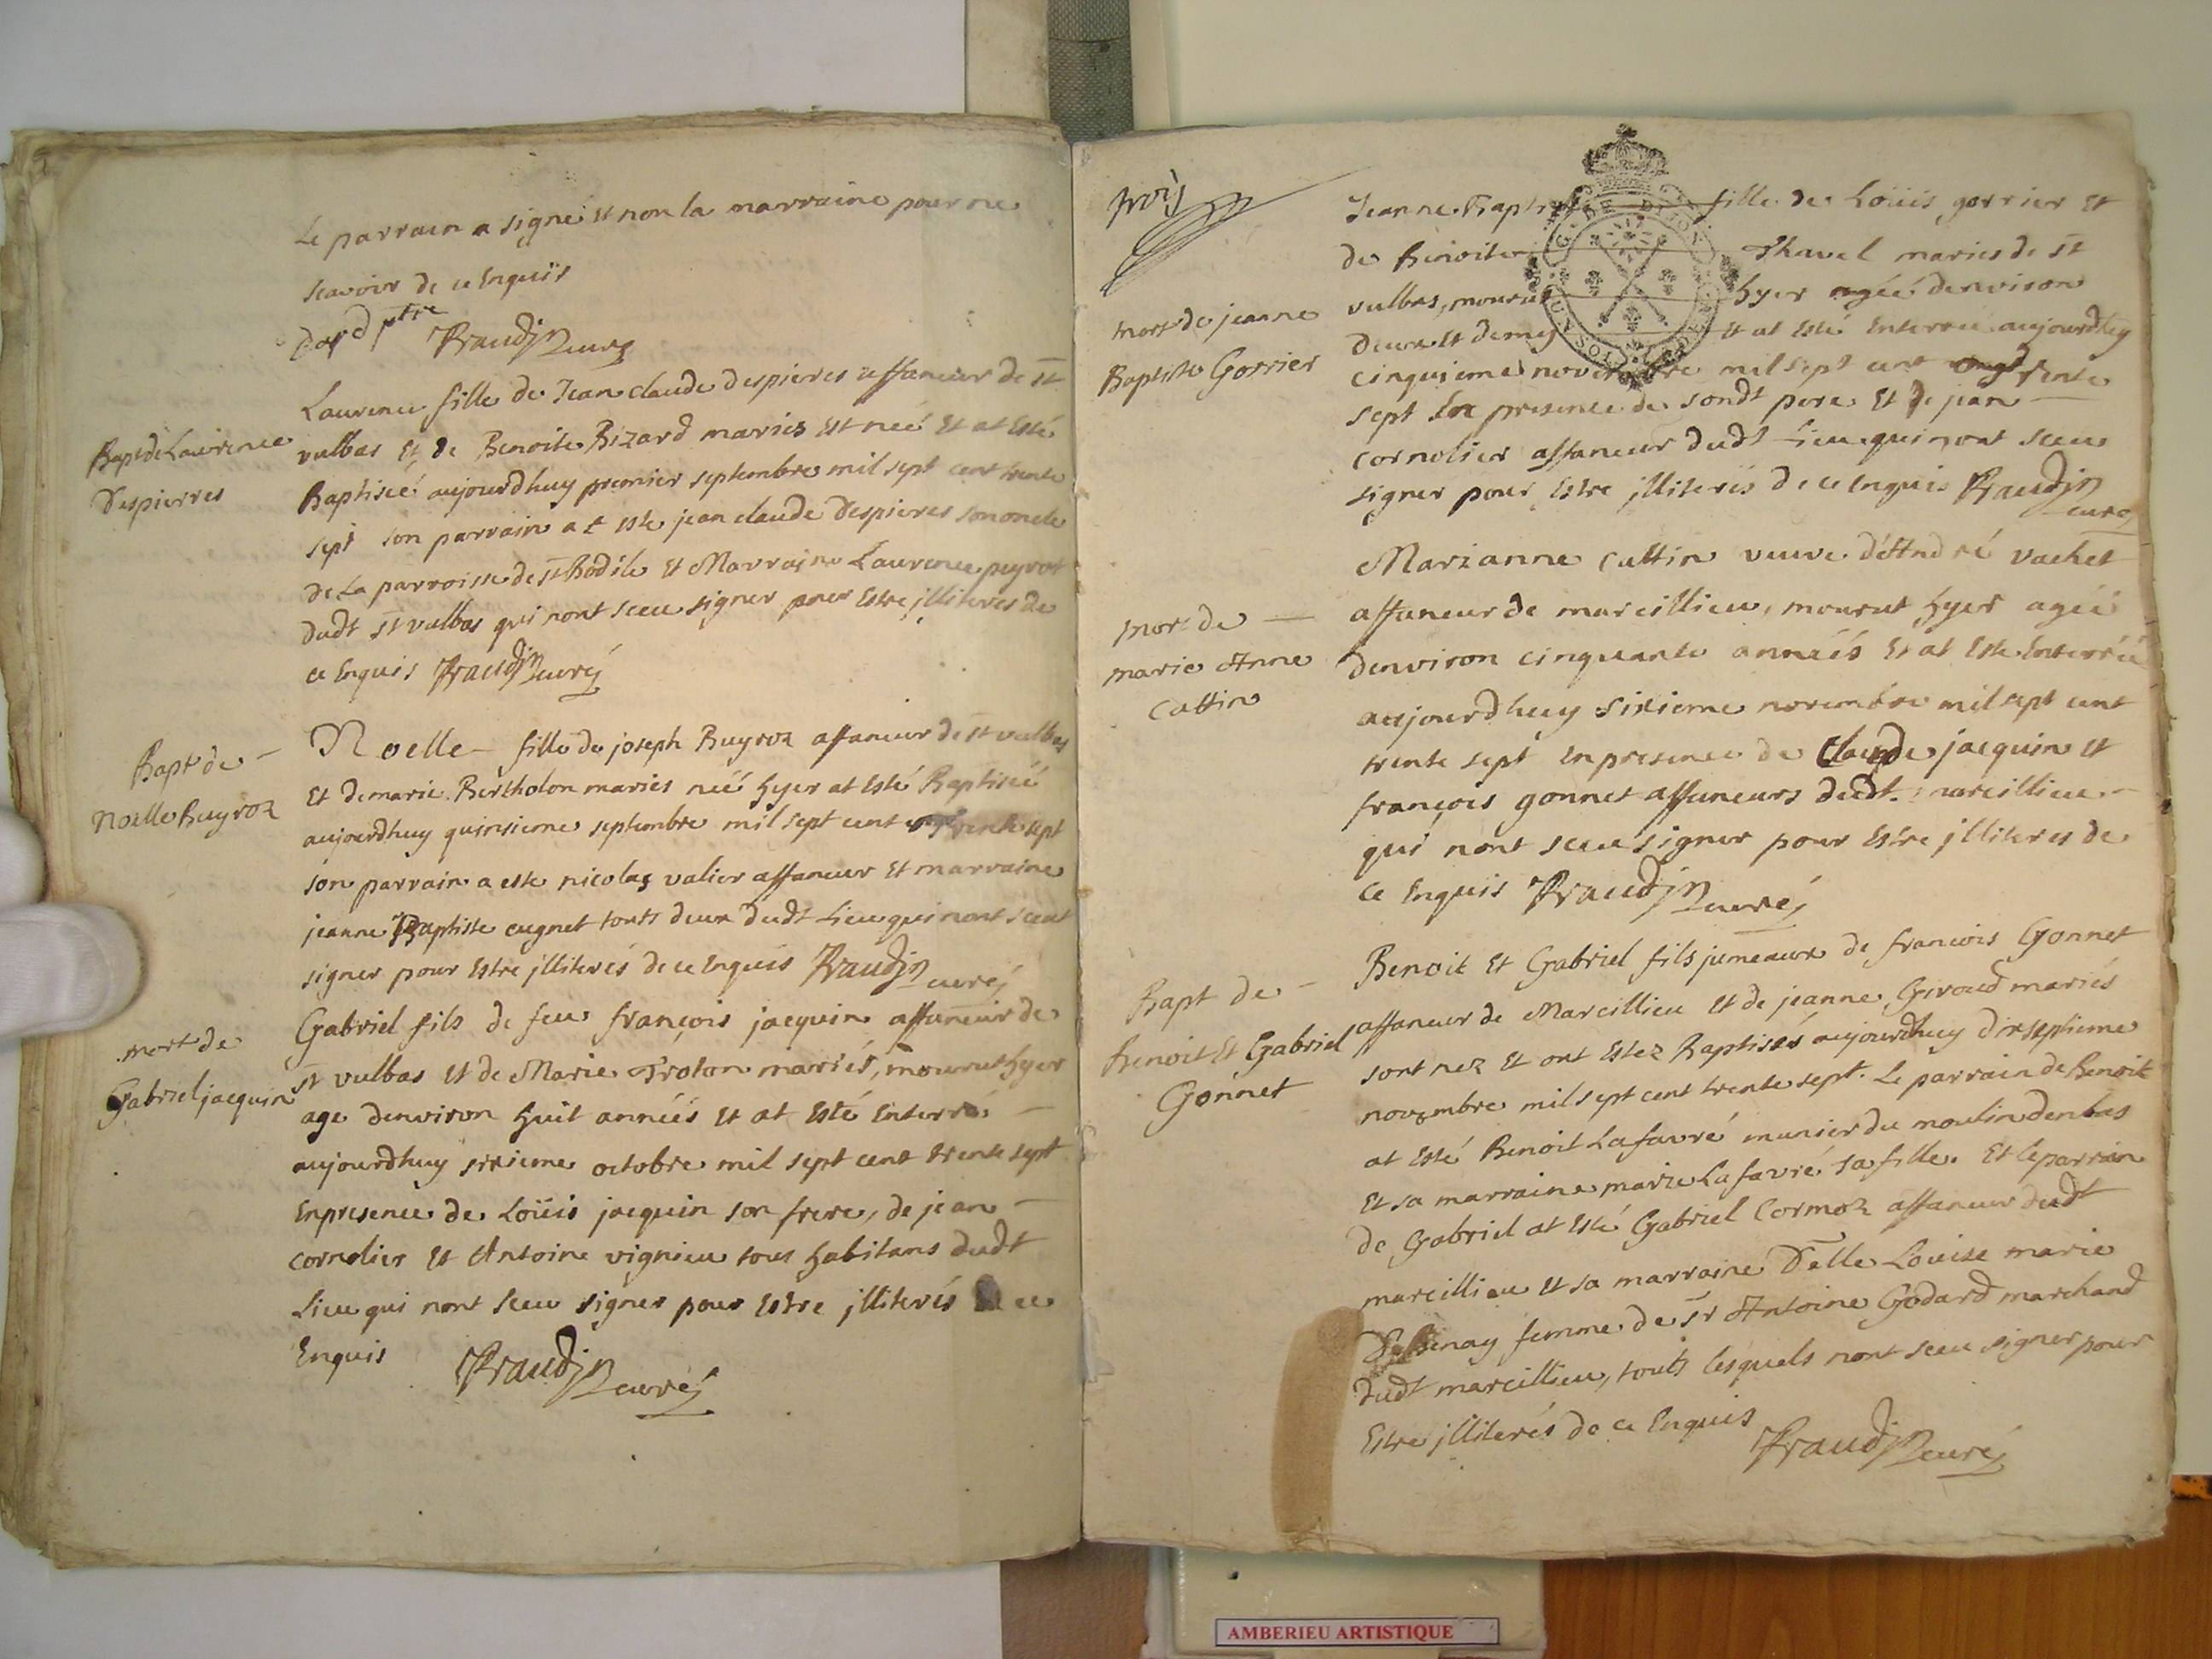 Le parrain a signé et non la marraine pour ne
scavoir de ce Enquis
ptre Praudin curé
Bapt de Laurence
Despierres
Laurence fille de Jean claude Despieres affaneur de st
vulbas Et de Benoite Bizard mariés Est neé Et at Esté
Baptiseé aujourdhuy premier septembre mil sept cent trente
sept son parrain a este jean claude Despieres son oncle
de La parroisse de st Bodile Et Marraine Laurence peyrot
dudt st vulbas qui nont sceu signer pour Estre jlliteres de
ce Enquis Praudin curé
Bapt de -
Noelle Buyroz
Noelle - fille de joseph Buyroz affaneur de st vulbas
Et de marie Bertholon mariés neé hyer at Esté Baptiseé
aujourdhuy quinsieme septembre mil sept cent trente sept
son parrain a este nicolas valier affaneur Et marraine
jeanne Baptiste cugnet touts deux dudt Lieu qui nont sceut
signer pour Estre jlliterés de ce Enquis Praudin curé
mort de
Gabriel jacquin
Gabriel fils de feu françois jacquin affaneur de
st vulbas Et de Marie Trolon mariés, mourut hyer
age denviron huit anneés Et at Esté Enterré -
aujourdhuy sixieme octobre mil sept cent trente sept
Enpresence de Loüis jacquin son frere, de jean -
cornolier Et Antoine vignieu tous habitans dudt
Lieu qui nont sceu signer pour Estre jlliterés de ce
Enquis Praudin curé
trois
mort de jeanne
Baptiste Gorrier
Jeanne Baptiste fille de Loüis gorrier Et
de Benoite Thavel mariés de st
vulbas, mourut hyer ageé denviron
deux Et demy Et at Esté Enterreé aujourdhuy
cinquieme novembre mil sept cent trente
sept En presence de sondt pere Et de jean -
cornolier affaneur dudt Lieu qui nont sceu
signer pour Estre jlliterés de ce Enquis Praudin
curé
mort de -
marie Anne
Cattin
Marianne Cattin veuve d'André vachet
affaneur de marcillieu, mourut hyer ageé
denviron cinquante anneés Et at Este Enterreé
aujourdhuy sixieme novembre mil sept cent
trente sept Enpresence de Claude jacquin Et
françois gonnet affaneurs dudt marcillieu -
qui nont sceu signer pour Estre jlliteres de
ce Enquis Praudin curé
Bapt de -
Benoit Et Gabriel
Gonnet
Benoit Et Gabriel fils jumeaux de francois Gonnet
affaneur de Marcillieu Et de jeanne Giroud mariés
sont nez Et ont Estez Baptisés aujourdhuy dixseptieme
novembre mil sept cent trente sept. Le parrain de Benoit
at Esté Benoit Lafavré munier du moulin denbas
Et sa marraine marie Lafavré sa fille. Et le parrain
de Gabriel at Esté Gabriel Cormoz affaneur dudt
marcillieu Et sa marraine Delle Louise marie
femme de sr Antoine Godard marchand
dudt marcillieu, touts lesquels nont sceu signer pour
Estre jlliterés de ce Enquis Praudin curé
AMBERIEU ARTISTIQUE